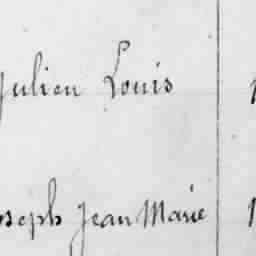 Julien Louis
Joseph Jean Marie